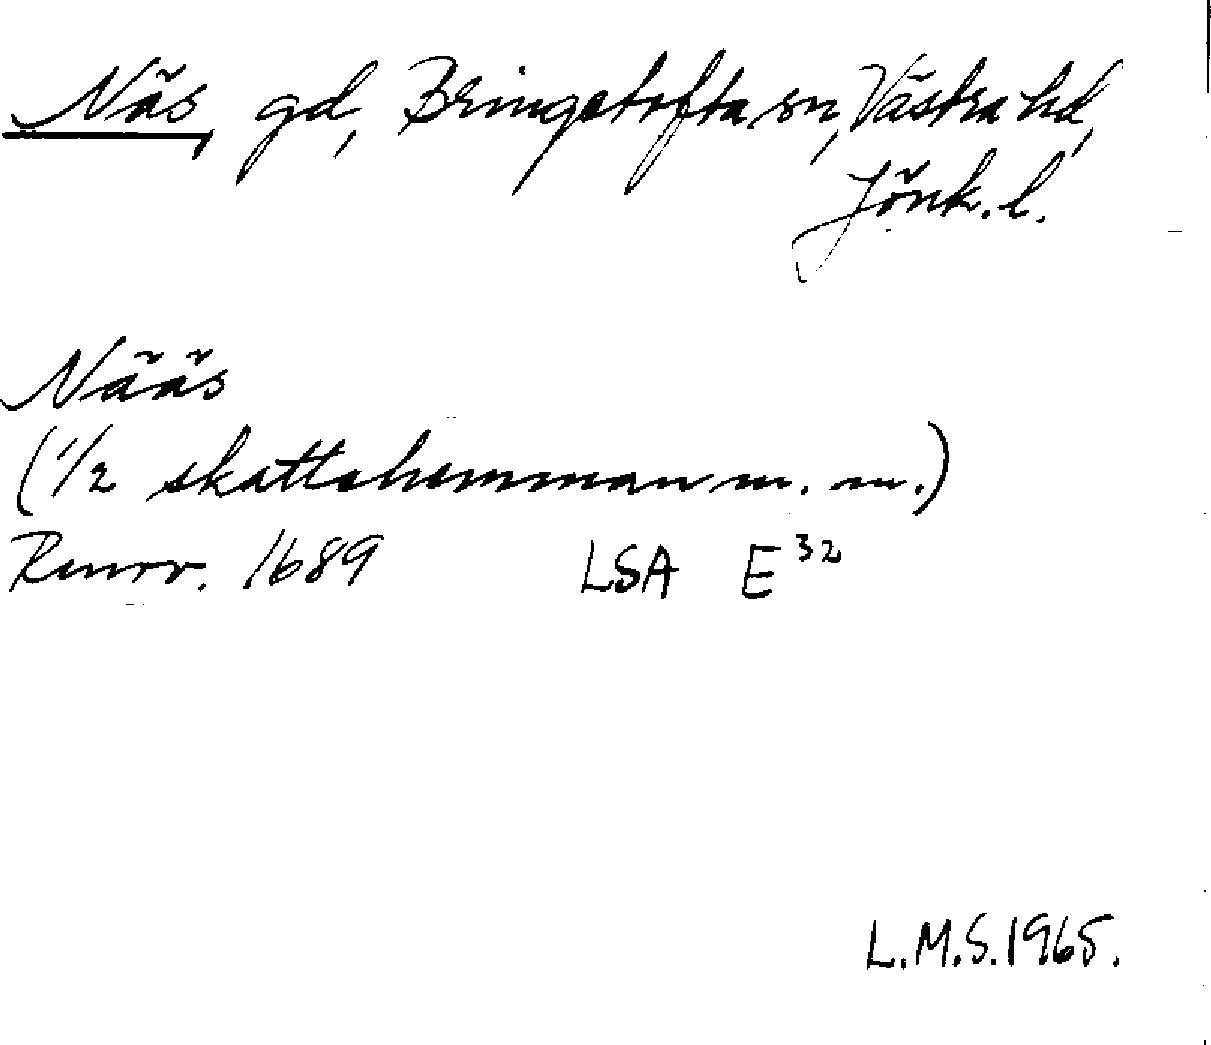 Näs, gd, Bringetofta sn, Västra hd,
Jönk. l.
Nääs
(1/2 skattehemman m. m.)
Renov. 1689 LSA E 32
L.M.S. 1965.